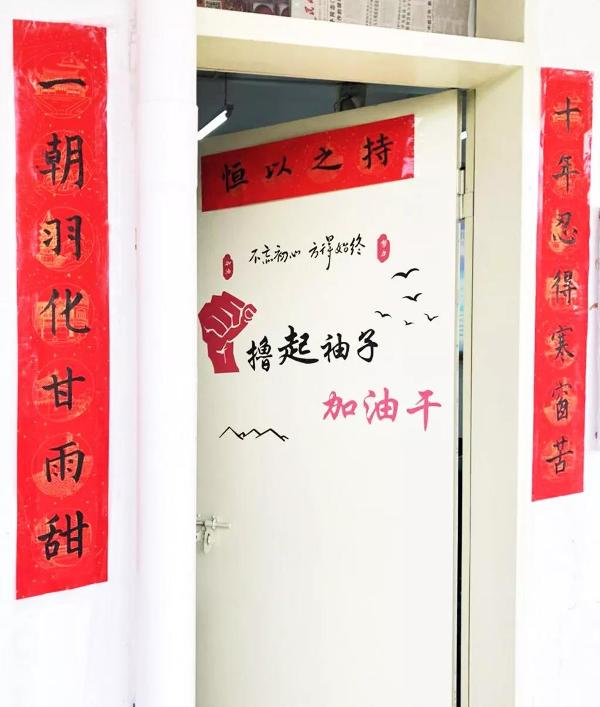 十年忍得寒窗苦
一朝羽化甘雨甜
恒以之持
不忘初心 方得始终
加油
撸起袖子
加油干